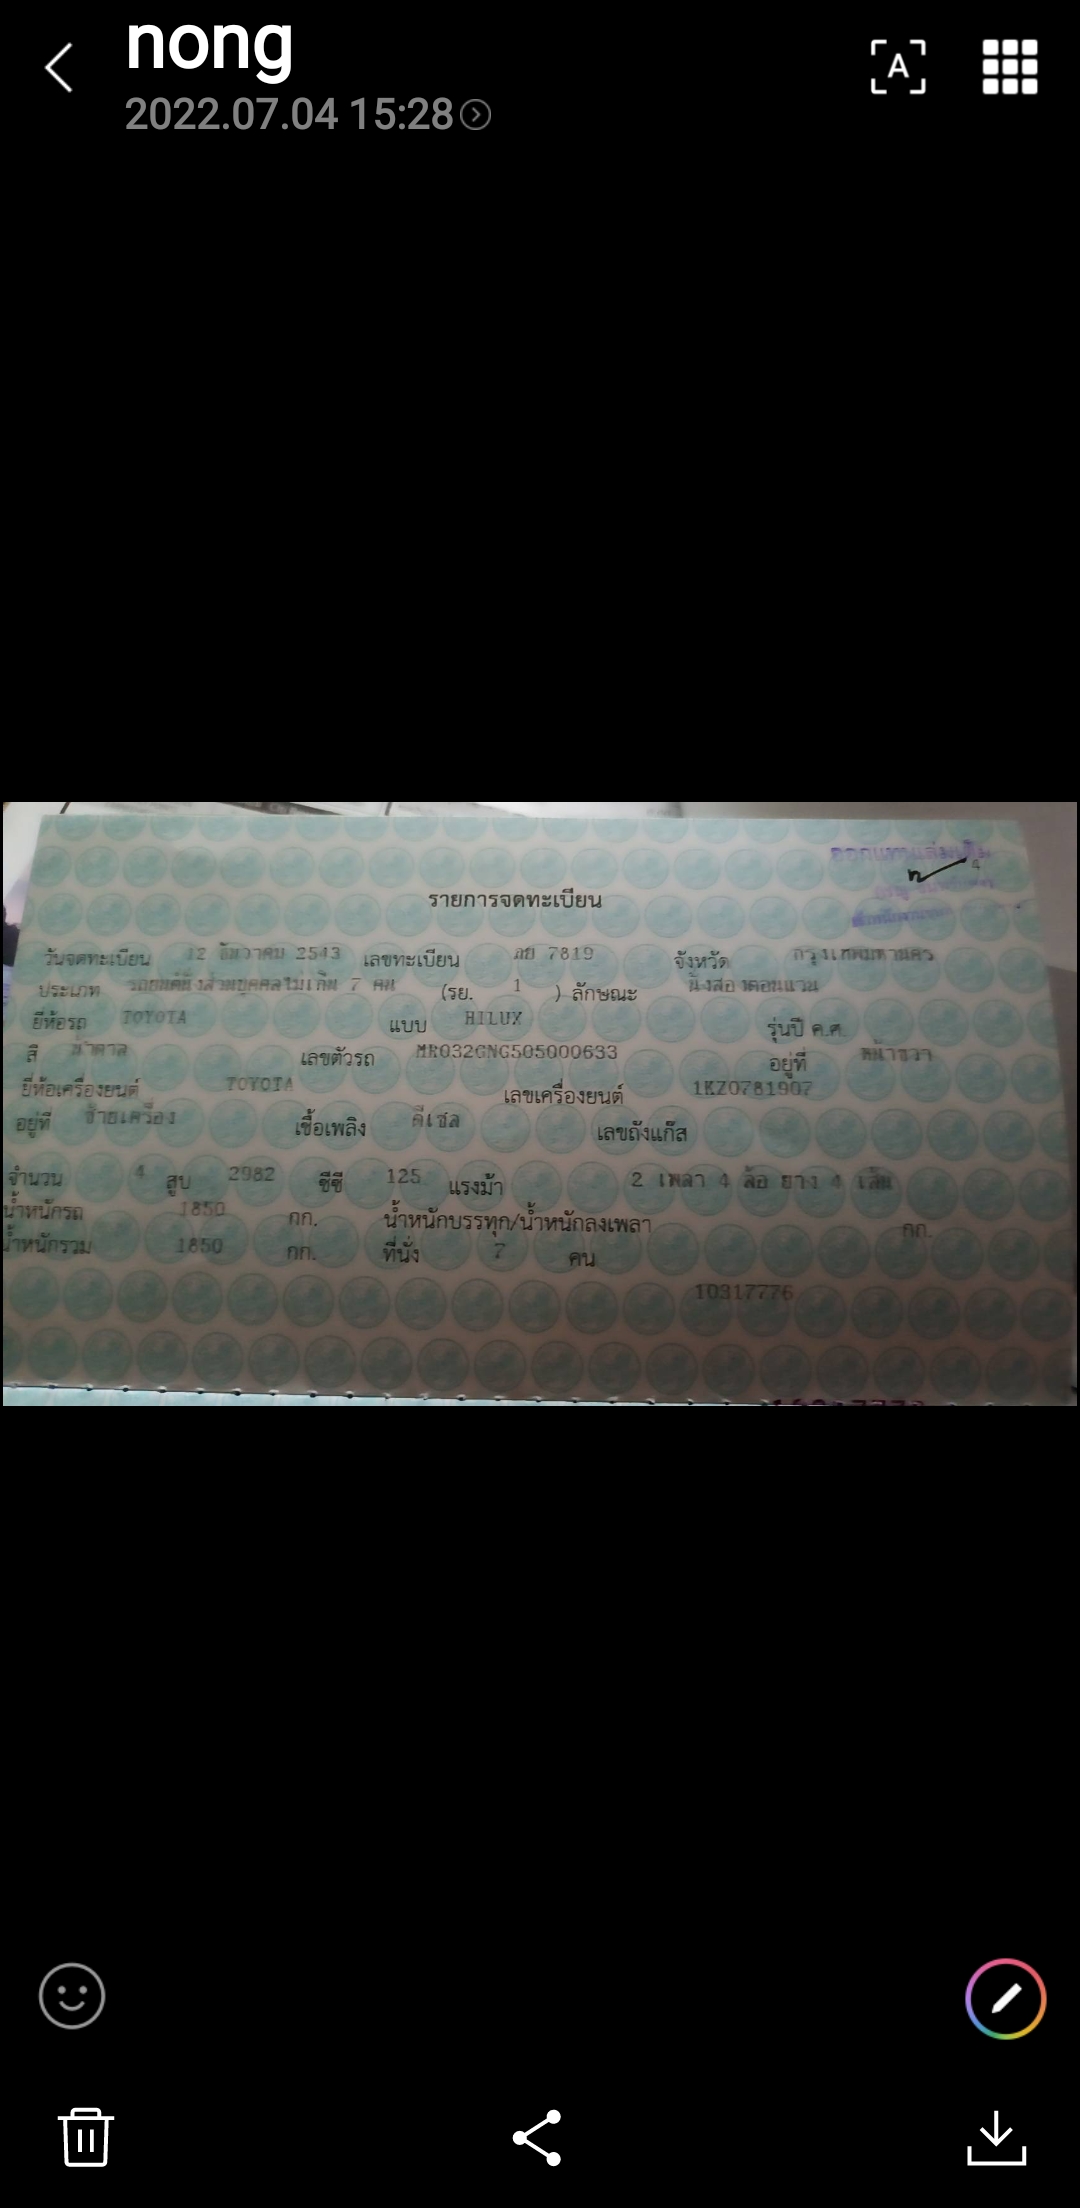 nong
2022.07.04 15:28
A
ออกแทนเล่มเดิม
4
รายการจดทะเบียน
วันจดทะเบียน 12 ธันวาคม 2543 เลขทะเบียน ภย 7819 จังหวัด กรุงเทพมหานคร
ประเภท รถยนต์นั่งส่วนบุคคลไม่เกิน 7 คน (รย. 1 ) ลักษณะ นั่งสองตอนแวน
ยี่ห้อรถ TOYOTA แบบ HILUX รุ่นปี ค.ศ.
สี น้ำตาล เลขตัวรถ MR032GNG505000633 อยู่ที่ หน้าขวา
ยี่ห้อเครื่องยนต์ TOYOTA เลขเครื่องยนต์ 1KZ0781907
อยู่ที่ ซ้ายเครื่อง เชื้อเพลิง ดีเซล เลขถังแก๊ส
จำนวน 4 สูบ 2982 ซีซี 125 แรงม้า 2 เพลา 4 ล้อ ยาง 4 เส้น
น้ำหนักรถ 1850 กก. น้ำหนักบรรทุก/น้ำหนักลงเพลา กก.
น้ำหนักรวม 1850 กก. ที่นั่ง 7 คน
10317776